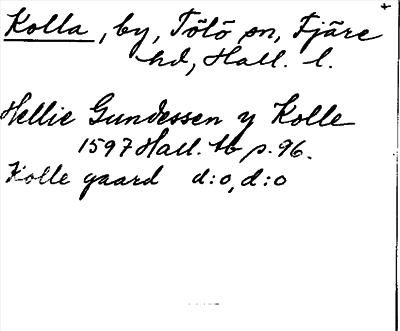 Kolla, by, Tölö sn, Fjäre
hd, Hall. l.
Hellie Gundessen y Kolle
1597 Hall. tb p. 96.
Kolle gaard d:o, d:o